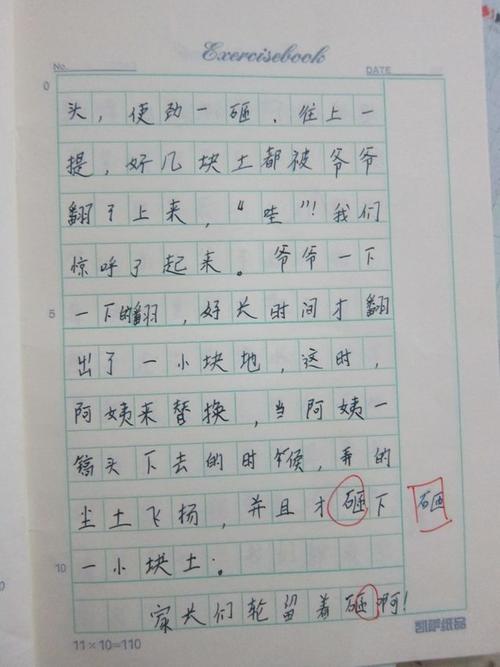 Exercisebook
No.
DATE
0
头，使劲一砸，往上一
提，好几块土都被爷爷
翻了上来，“哇”！我们
惊呼了起来。爷爷一下
5
一下的翻，好长时间才翻
出了一小块地，这时，
阿姨来替换，当阿姨一
镐头下去的时候，弄的
尘土飞扬，并且才砸下
砸
10
一小块土。
家长们轮留着砸啊！
11×10=110